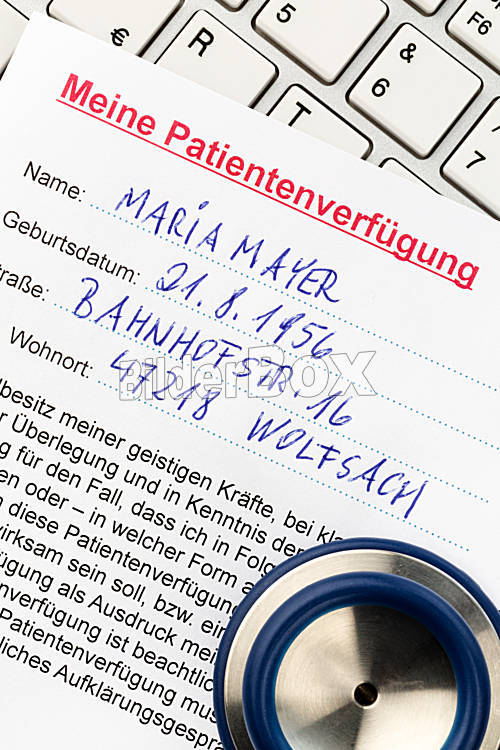 5
6
&
7
F6
€
R
T
Meine Patientenverfügung
Name: MARIA MAYER
Geburtsdatum: 21.8.1956
traße: BAHNHOFSTR. 16
Wohnort: 47218 WOLFSACH
BilderBOX
lbesitz meiner geistigen Kräfte, bei kla
r Überlegung und in Kenntnis der
g für den Fall, dass ich in Folg
en oder – in welcher Form a
n diese Patientenverfügung
virksam sein soll, bzw. ein
fügung als Ausdruck mei
nverfügung ist beachtlic
Patientenverfügung mus
liches Aufklärungsgesprä